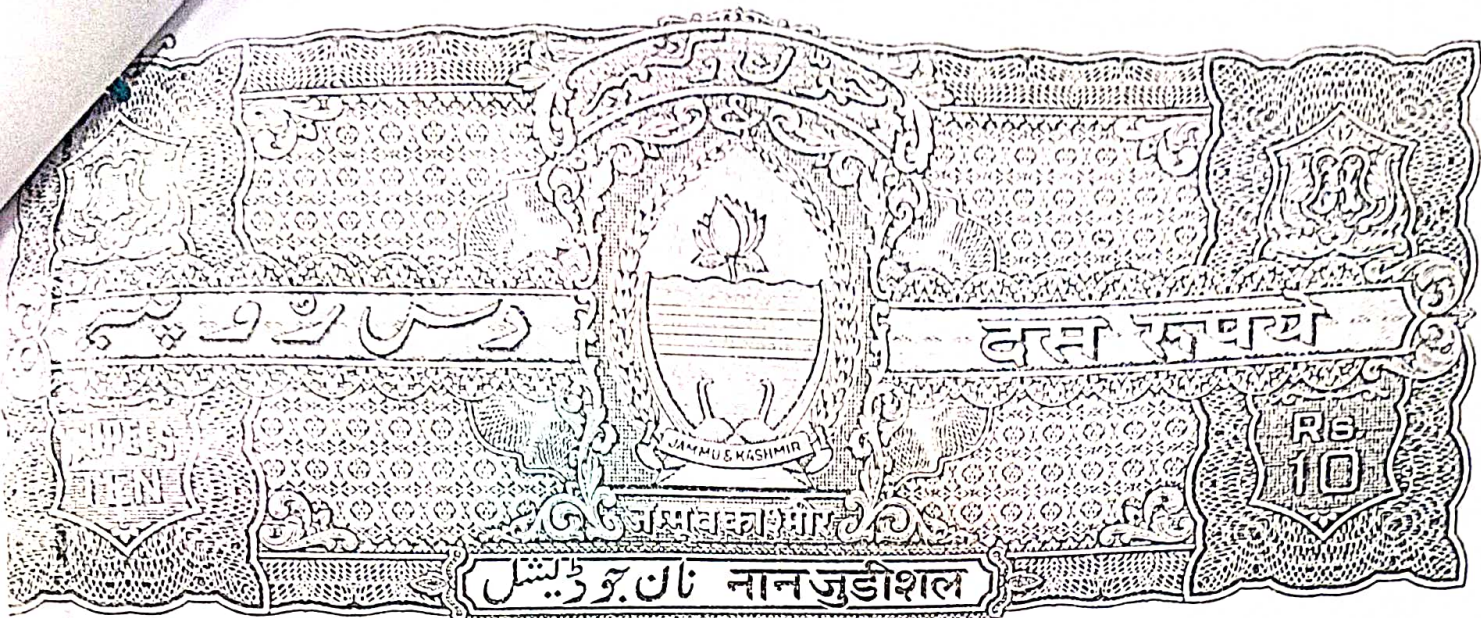 جموں و کشمیر
دس روپیہ
दस रूपये
RUPEES
TEN
JAMMU & KASHMIR
Rs.
10
जम्मू व काश्मीर
نان جوڈیشل नानजुडीशल